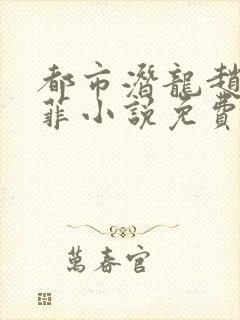 都市潛龍趙
菲小說免費
萬春官